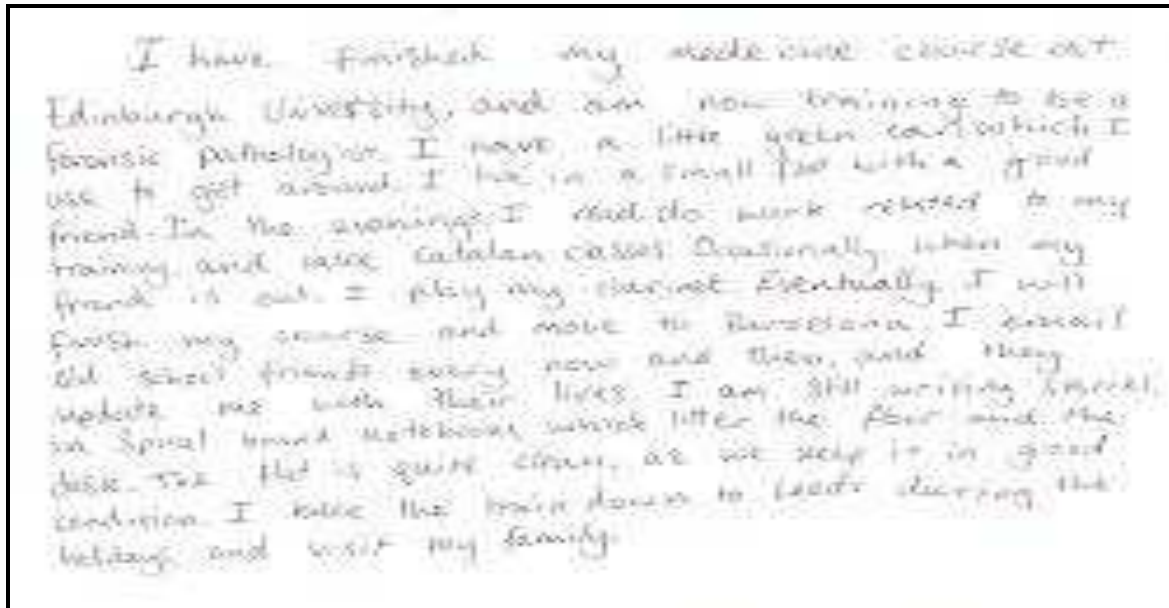 I have finished my medicine course at
Edinburgh University, and am now training to be a
forensic pathologist. I have a little green car which I
use to get around. I live in a small flat with a good
friend. In the evenings I read, do work related to my
training, and take Catalan classes. Occasionally, when my
friend is out, I play my clarinet. Eventually, I will
finish my course and move to Barcelona. I email
old school friends every now and then, and they
update me with their lives. I am still writing stories,
in spiral bound notebooks which litter the floor and the
desk. The flat is quite clean, as we keep it in good
condition. I take the train down to Leeds during the
holidays and visit my family.